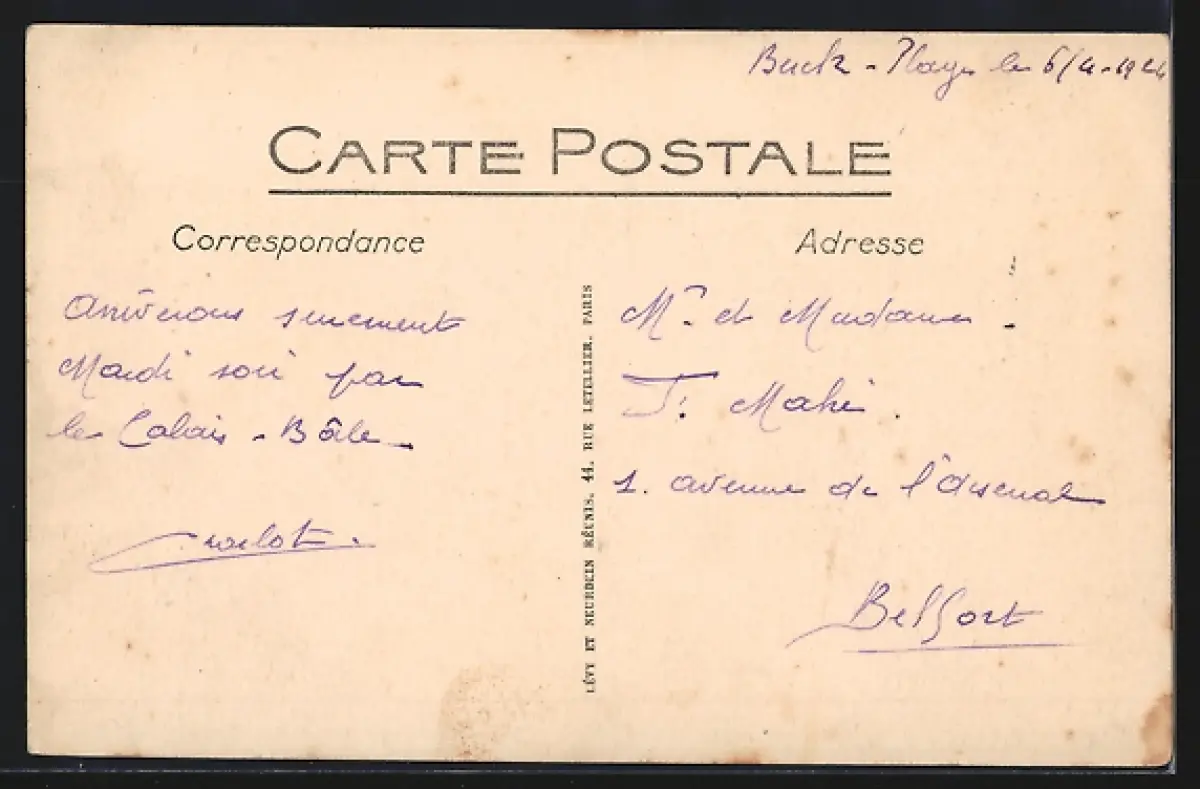 Berck - Plage le 6/4-19
CARTE POSTALE
Correspondance
Adresse
Arriverons surement
Mardi soir par
le Calais - Bâle
M. et Madame
J. Mahi.
1. avenue de l'Arsenal
Belfort
LÉVY ET NEURDEIN RÉUNIS, 44, RUE LETELLIER, PARIS